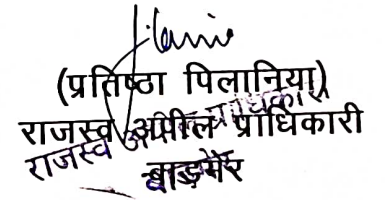 (प्रतिष्ठा पिलानिया)
राजस्व अपील प्राधिकारी
राजस्व अपील प्राधिकारी
बाड़मेर